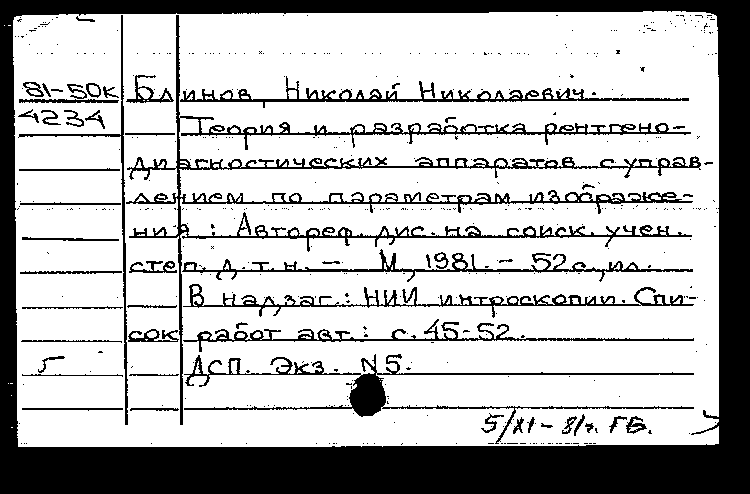 81-50к Блинов, Николай Николаевич.
4234 Теория и разработка рентгено-
диагностических аппаратов с управ-
лением по параметрам изображе-
ния : Автореф. дис. на соиск. учен.
степ. д. т. н. - М., 1981. - 52 с., ил.
В надзаг.: НИИ интроскопии. Спи-
сок работ авт.: с. 45-52.
5 ДСП. Экз. N5.
5/XI - 81г. ГБ.